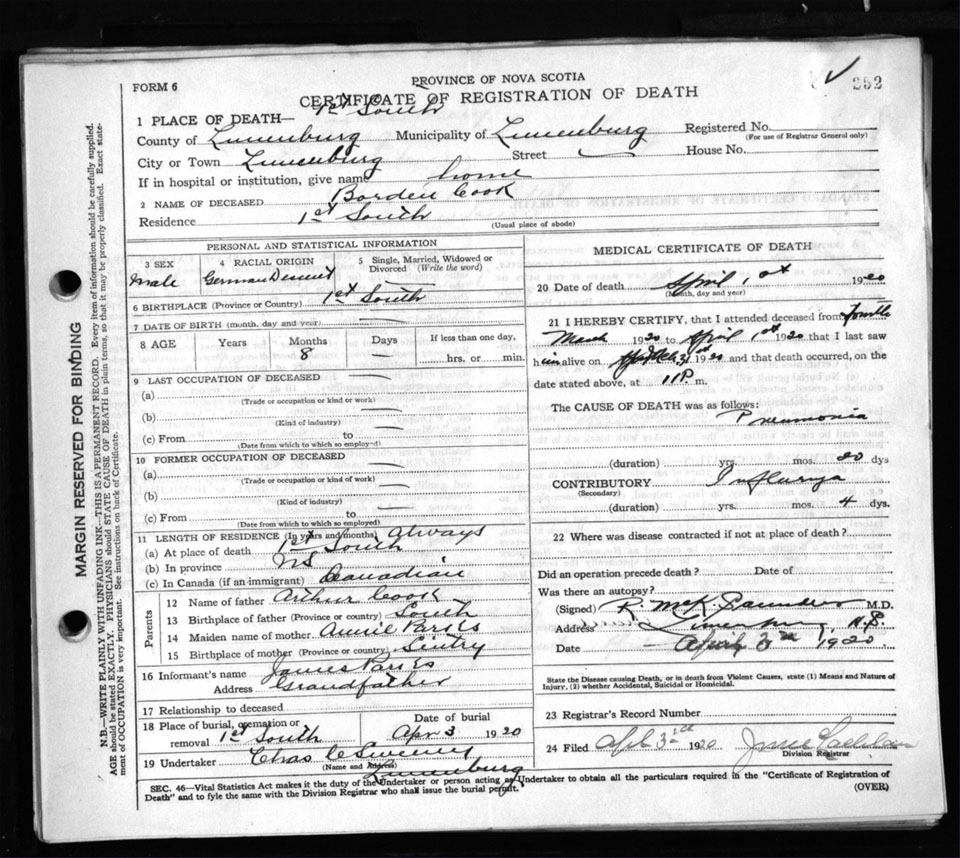 252
FORM 6
PROVINCE OF NOVA SCOTIA
CERTIFICATE OF REGISTRATION OF DEATH
1 PLACE OF DEATH— 1st South
County of Lunenburg Municipality of Lunenburg Registered No.
(For use of Registrar General only)
City or Town Lunenburg Street House No.
If in hospital or institution, give name home
2 NAME OF DECEASED Borden Cook
Residence 1st South
(Usual place of abode)
PERSONAL AND STATISTICAL INFORMATION
3 SEX 4 RACIAL ORIGIN 5 Single, Married, Widowed or Divorced (Write the word)
Male German Descent
6 BIRTHPLACE (Province or Country) 1st South
7 DATE OF BIRTH (month, day and year)
8 AGE Years Months Days If less than one day,
8 hrs. or min.
9 LAST OCCUPATION OF DECEASED
(a)
(Trade or occupation or kind of work)
(b)
(Kind of industry)
(c) From to
(Date from which to which so employed)
10 FORMER OCCUPATION OF DECEASED
(a)
(Trade or occupation or kind of work)
(b)
(Kind of industry)
(c) From to
(Date from which to which so employed)
11 LENGTH OF RESIDENCE (In years and months) Always
(a) At place of death 1st South
(b) In province NS
(c) In Canada (if an immigrant) Canadian
Parents
12 Name of father Arthur Cook
13 Birthplace of father (Province or country) South
14 Maiden name of mother Annie Parks
15 Birthplace of mother (Province or country) Sentry
16 Informant's name James Parks
Address Grandfather
17 Relationship to deceased
18 Place of burial, cremation or removal 1st South
Date of burial Apr 3 1920
19 Undertaker Chas C Sweeny
(Name and Address) Lunenburg
MEDICAL CERTIFICATE OF DEATH
20 Date of death April 1st 1920
(Month, day and year)
21 I HEREBY CERTIFY, that I attended deceased from fourth
March 1920 to April 1st 1920 that I last saw
him alive on 31st 1920 and that death occurred, on the
date stated above, at 11 P. m.
The CAUSE OF DEATH was as follows:
Pneumonia
(duration) yrs. mos. 20 dys
CONTRIBUTORY Influenza
(Secondary)
(duration) yrs. mos. 4 dys.
22 Where was disease contracted if not at place of death?
Did an operation precede death? Date of
Was there an autopsy?
(Signed) R. McK Saunders M.D.
Address Lunenburg N.S.
Date April 3rd 1920
State the Disease causing Death, or in death from Violent Causes, state (1) Means and Nature of
Injury, (2) whether Accidental, Suicidal or Homicidal.
23 Registrar's Record Number
24 Filed Apl 3rd 1920
Division Registrar
SEC. 46—Vital Statistics Act makes it the duty of the Undertaker or person acting as Undertaker to obtain all the particulars required in the "Certificate of Registration of
Death" and to fyle the same with the Division Registrar who shall issue the burial permit. (OVER)
MARGIN RESERVED FOR BINDING
N.B.—WRITE PLAINLY WITH UNFADING INK—THIS IS A PERMANENT RECORD. Every item of information should be carefully supplied.
AGE should be stated EXACTLY. PHYSICIANS should STATE CAUSE OF DEATH in plain terms, so that it may be properly classified. Exact state-
ment of OCCUPATION is very important. See instructions on back of Certificate.